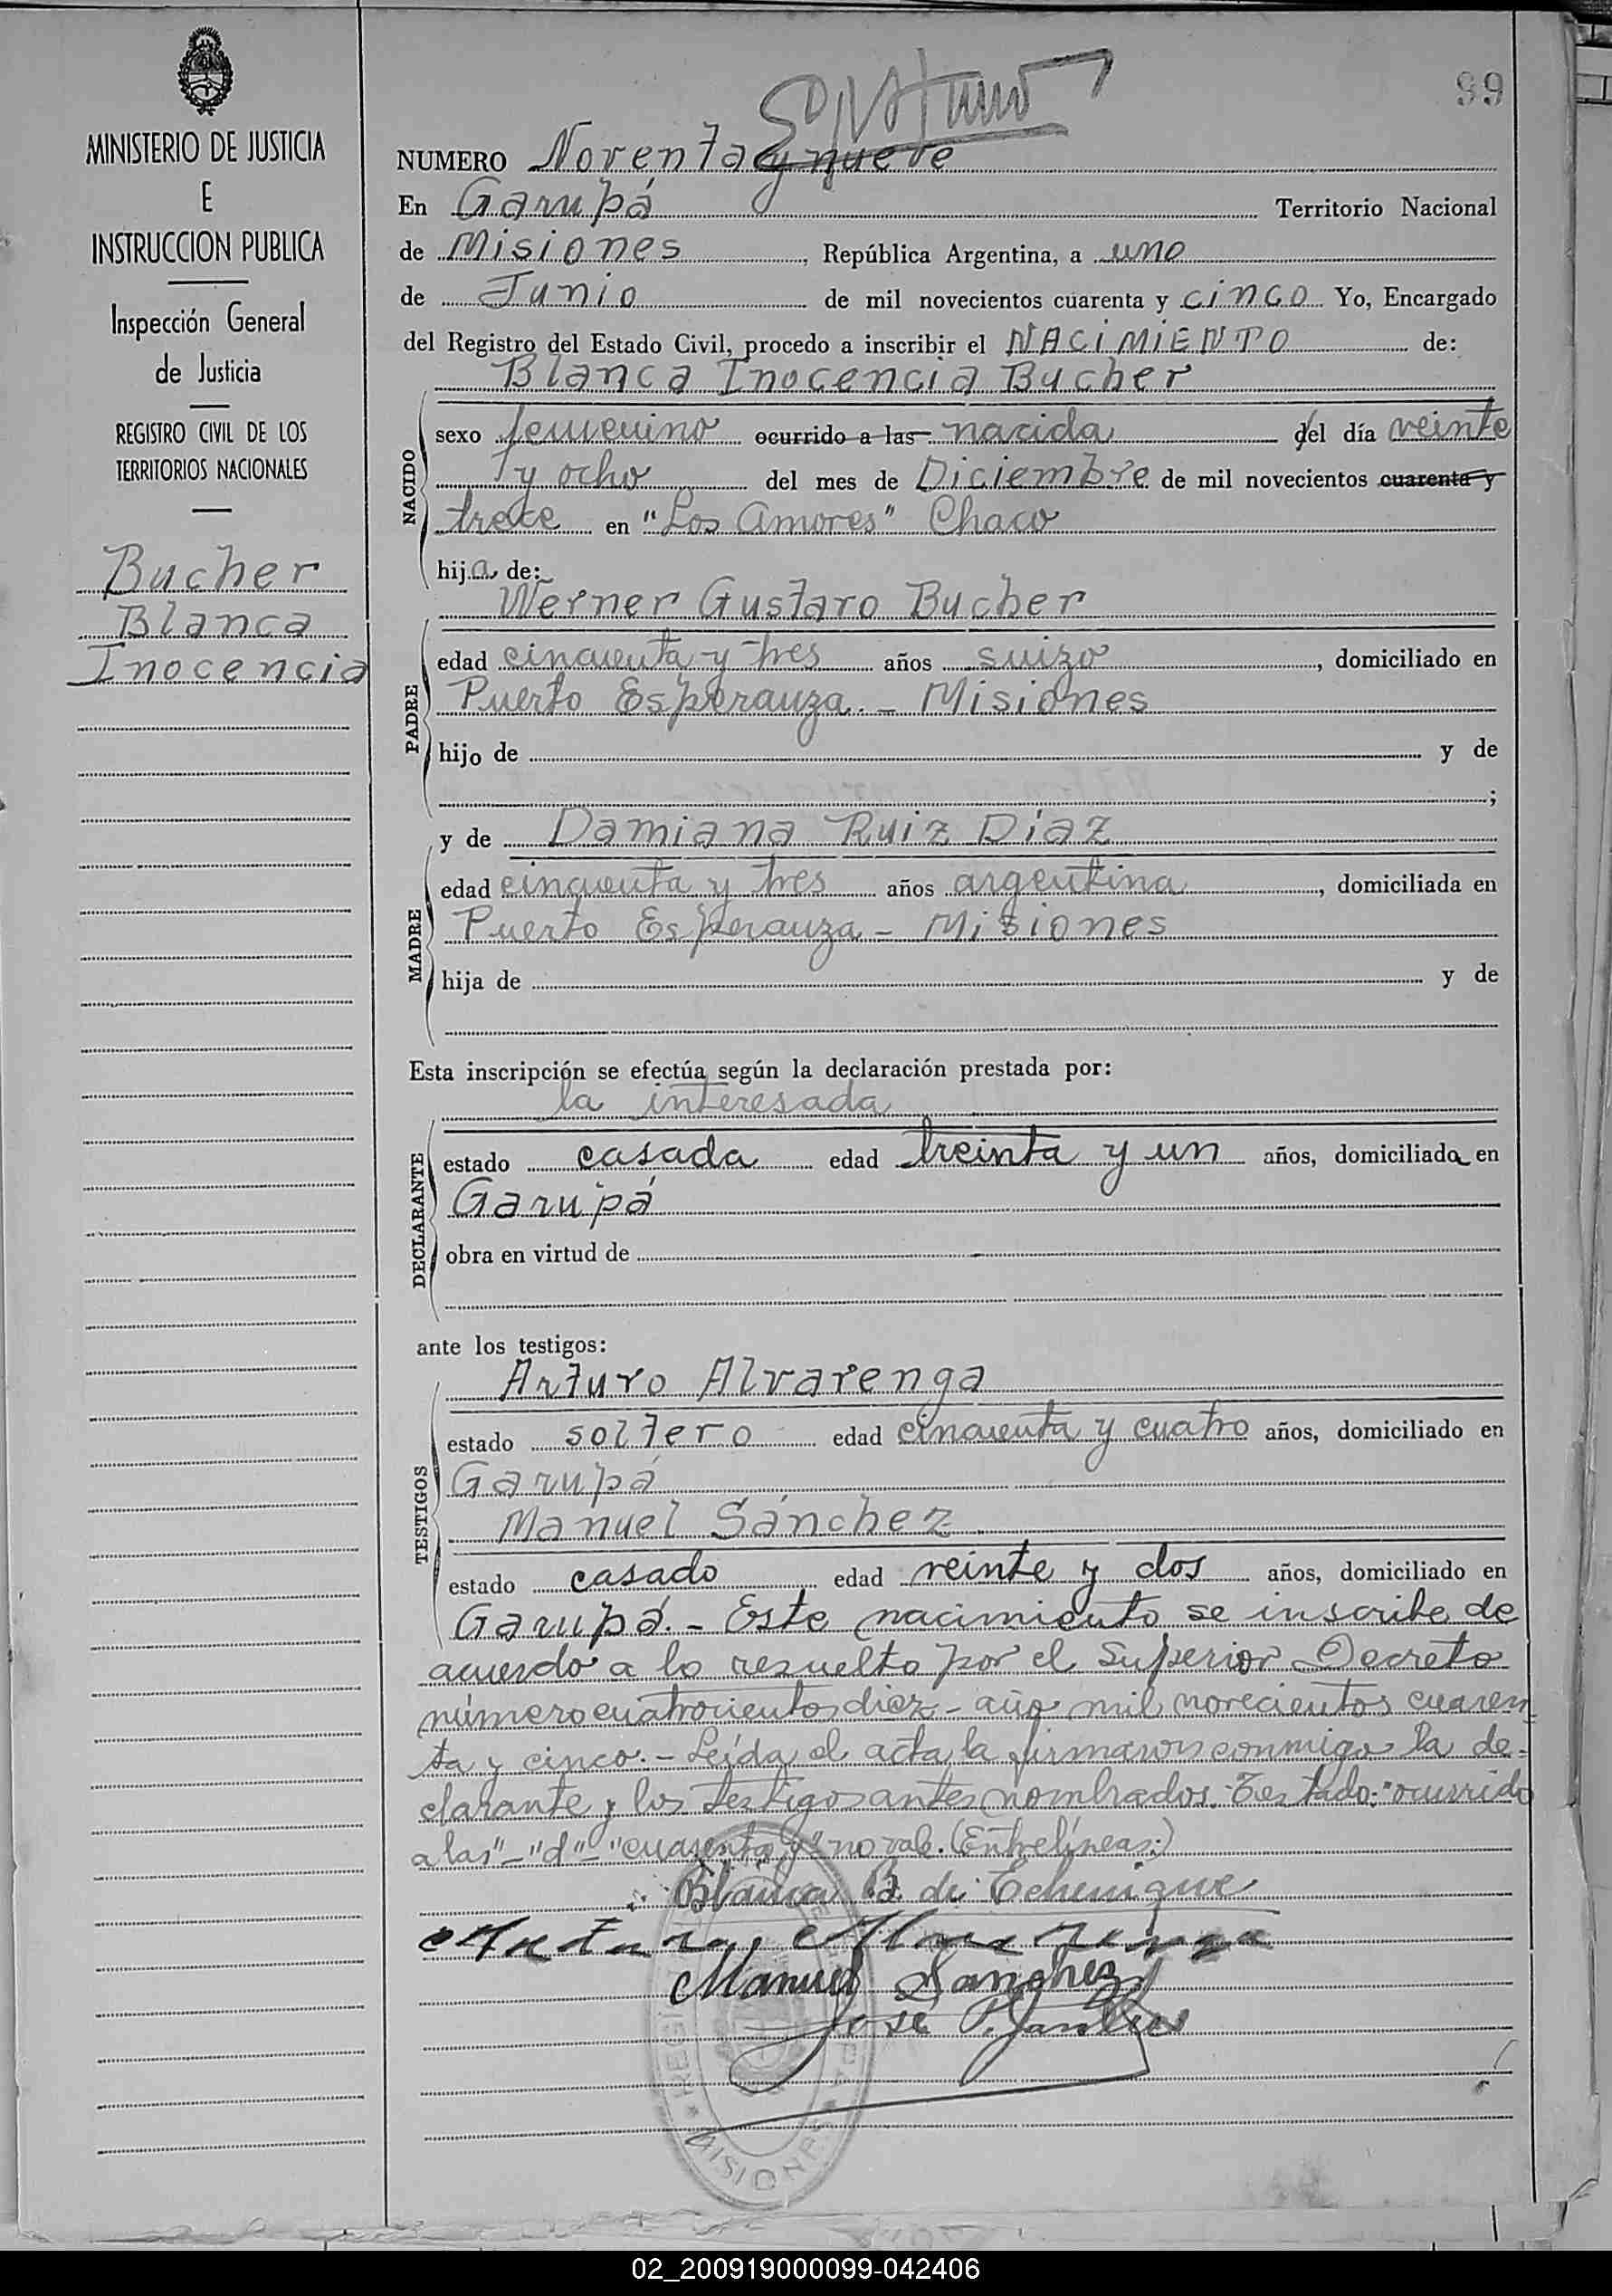 MINISTERIO DE JUSTICIA
E
INSTRUCCION PUBLICA
Inspección General
de Justicia
REGISTRO CIVIL DE LOS
TERRITORIOS NACIONALES
Bucher
Blanca
Inocencia
99
NUMERO Noventa y nueve
En Garupá Territorio Nacional
de Misiones, República Argentina, a uno
de Junio de mil novecientos cuarenta y cinco Yo, Encargado
del Registro del Estado Civil, procedo a inscribir el NACIMIENTO de:
Blanca Inocencia Bucher
NACIDO
sexo femenino ocurrido a las nacida del día veinte
y ocho del mes de Diciembre de mil novecientos cuarenta y
trece en "Los Amores" Chaco
hija de:
Werner Gustavo Bucher
PADRE
edad cincuenta y tres años suizo, domiciliado en
Puerto Esperanza. - Misiones
hijo de y de
;
y de Damiana Ruiz Diaz
MADRE
edad cincuenta y tres años argentina, domiciliada en
Puerto Esperanza - Misiones
hija de y de
Esta inscripción se efectúa según la declaración prestada por:
la interesada
DECLARANTE
estado casada edad treinta y un años, domiciliada en
Garupá
obra en virtud de
ante los testigos:
Arturo Alvarenga
TESTIGOS
estado soltero edad cincuenta y cuatro años, domiciliado en
Garupá
Manuel Sánchez
estado casado edad veinte y dos años, domiciliado en
Garupá. - Este nacimiento se inscribe de
acuerdo a lo resuelto por el Superior Decreto
número cuatrocientos diez - año mil novecientos cuaren-
ta y cinco. - Leída el acta, la firmaron conmigo la de-
clarante y los testigos antes nombrados. Testado: "ocurrido
a las" - "d" - "cuarenta y" no vale. (Entrelíneas:)
Blanca B. de Echenique
Arturo Alvarenga
Manuel Sanchez
José P.
MISIONES
02_200919000099-042406